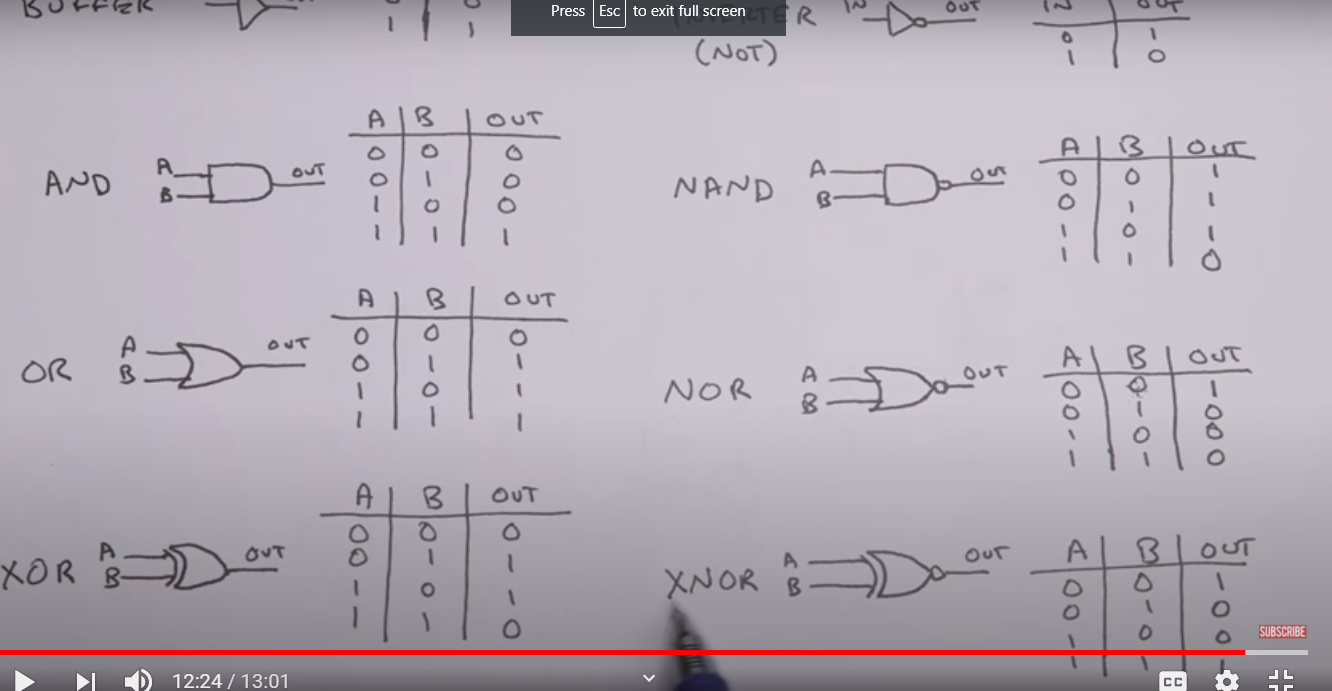 BUFFER
1 1
Press Esc to exit full screen
INVERTER
(NOT)
IN OUT
IN OUT
0 1
1 0
AND
A
B
OUT
A B OUT
0 0 0
0 1 0
1 0 0
1 1 1
NAND
A
B
OUT
A B OUT
0 0 1
0 1 1
1 0 1
1 1 0
OR
A
B
OUT
A B OUT
0 0 0
0 1 1
1 0 1
1 1 1
NOR
A
B
OUT
A B OUT
0 0 1
0 1 0
1 0 0
1 1 0
XOR
A
B
OUT
A B OUT
0 0 0
0 1 1
1 0 1
1 1 0
XNOR
A
B
OUT
A B OUT
0 0 1
0 1 0
1 0 0
1 1 1
SUBSCRIBE
12:24 / 13:01
CC